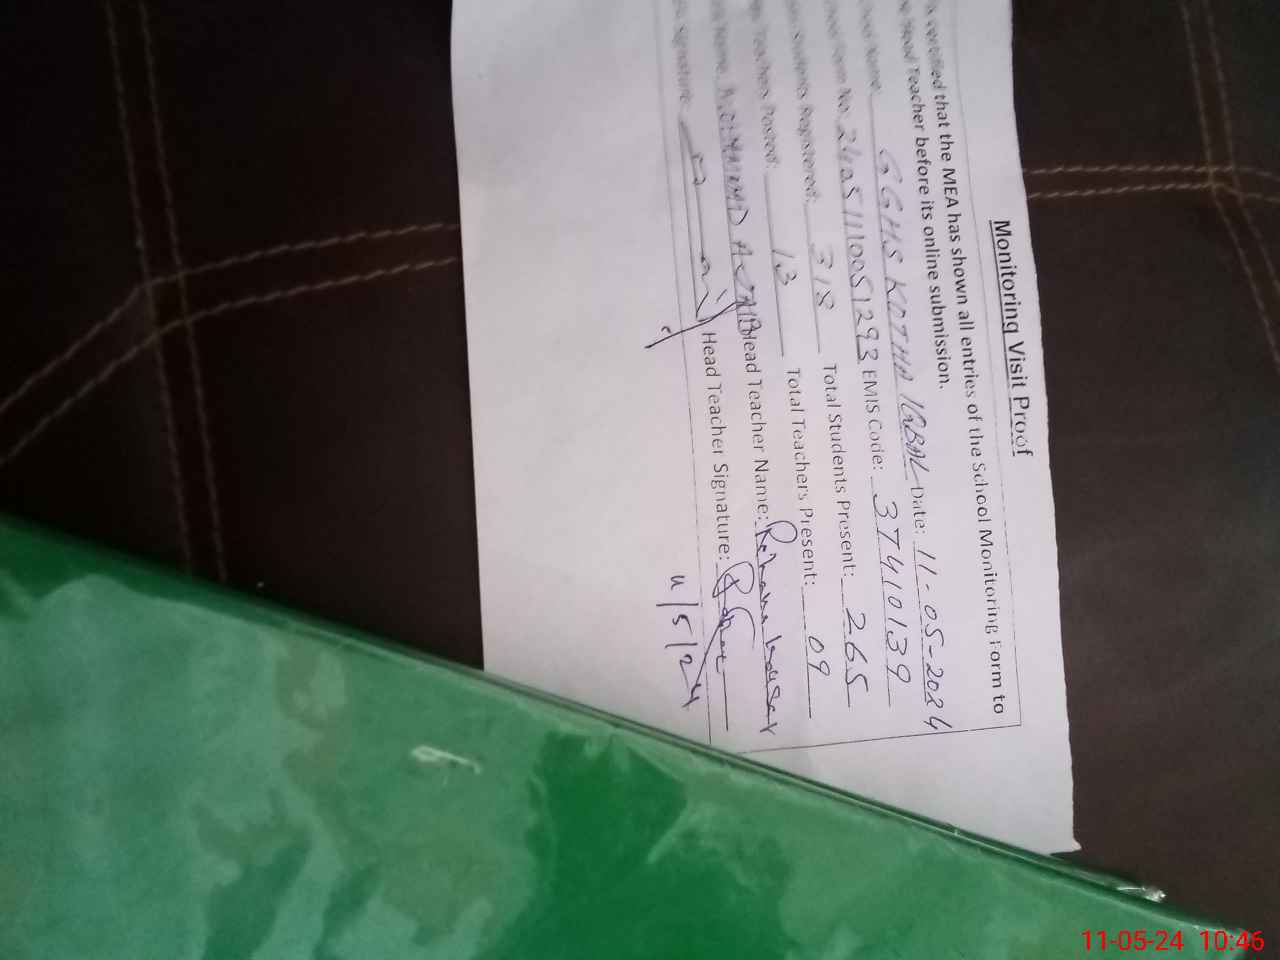 Monitoring Visit Proof
certified that the MEA has shown all entries of the School Monitoring Form to
Head Teacher before its online submission.
Name: GGHS KOTHA IQBAL Date: 11-05-2024
Form No: 24051110051293 EMIS Code: 37410139
Students Registered: 318 Total Students Present: 265
Teachers Posted: 13 Total Teachers Present: 09
Name: MOHAMMAD Head Teacher Name: Rehana Kausar
Signature: Head Teacher Signature:
11/5/24
11-05-24 10:46